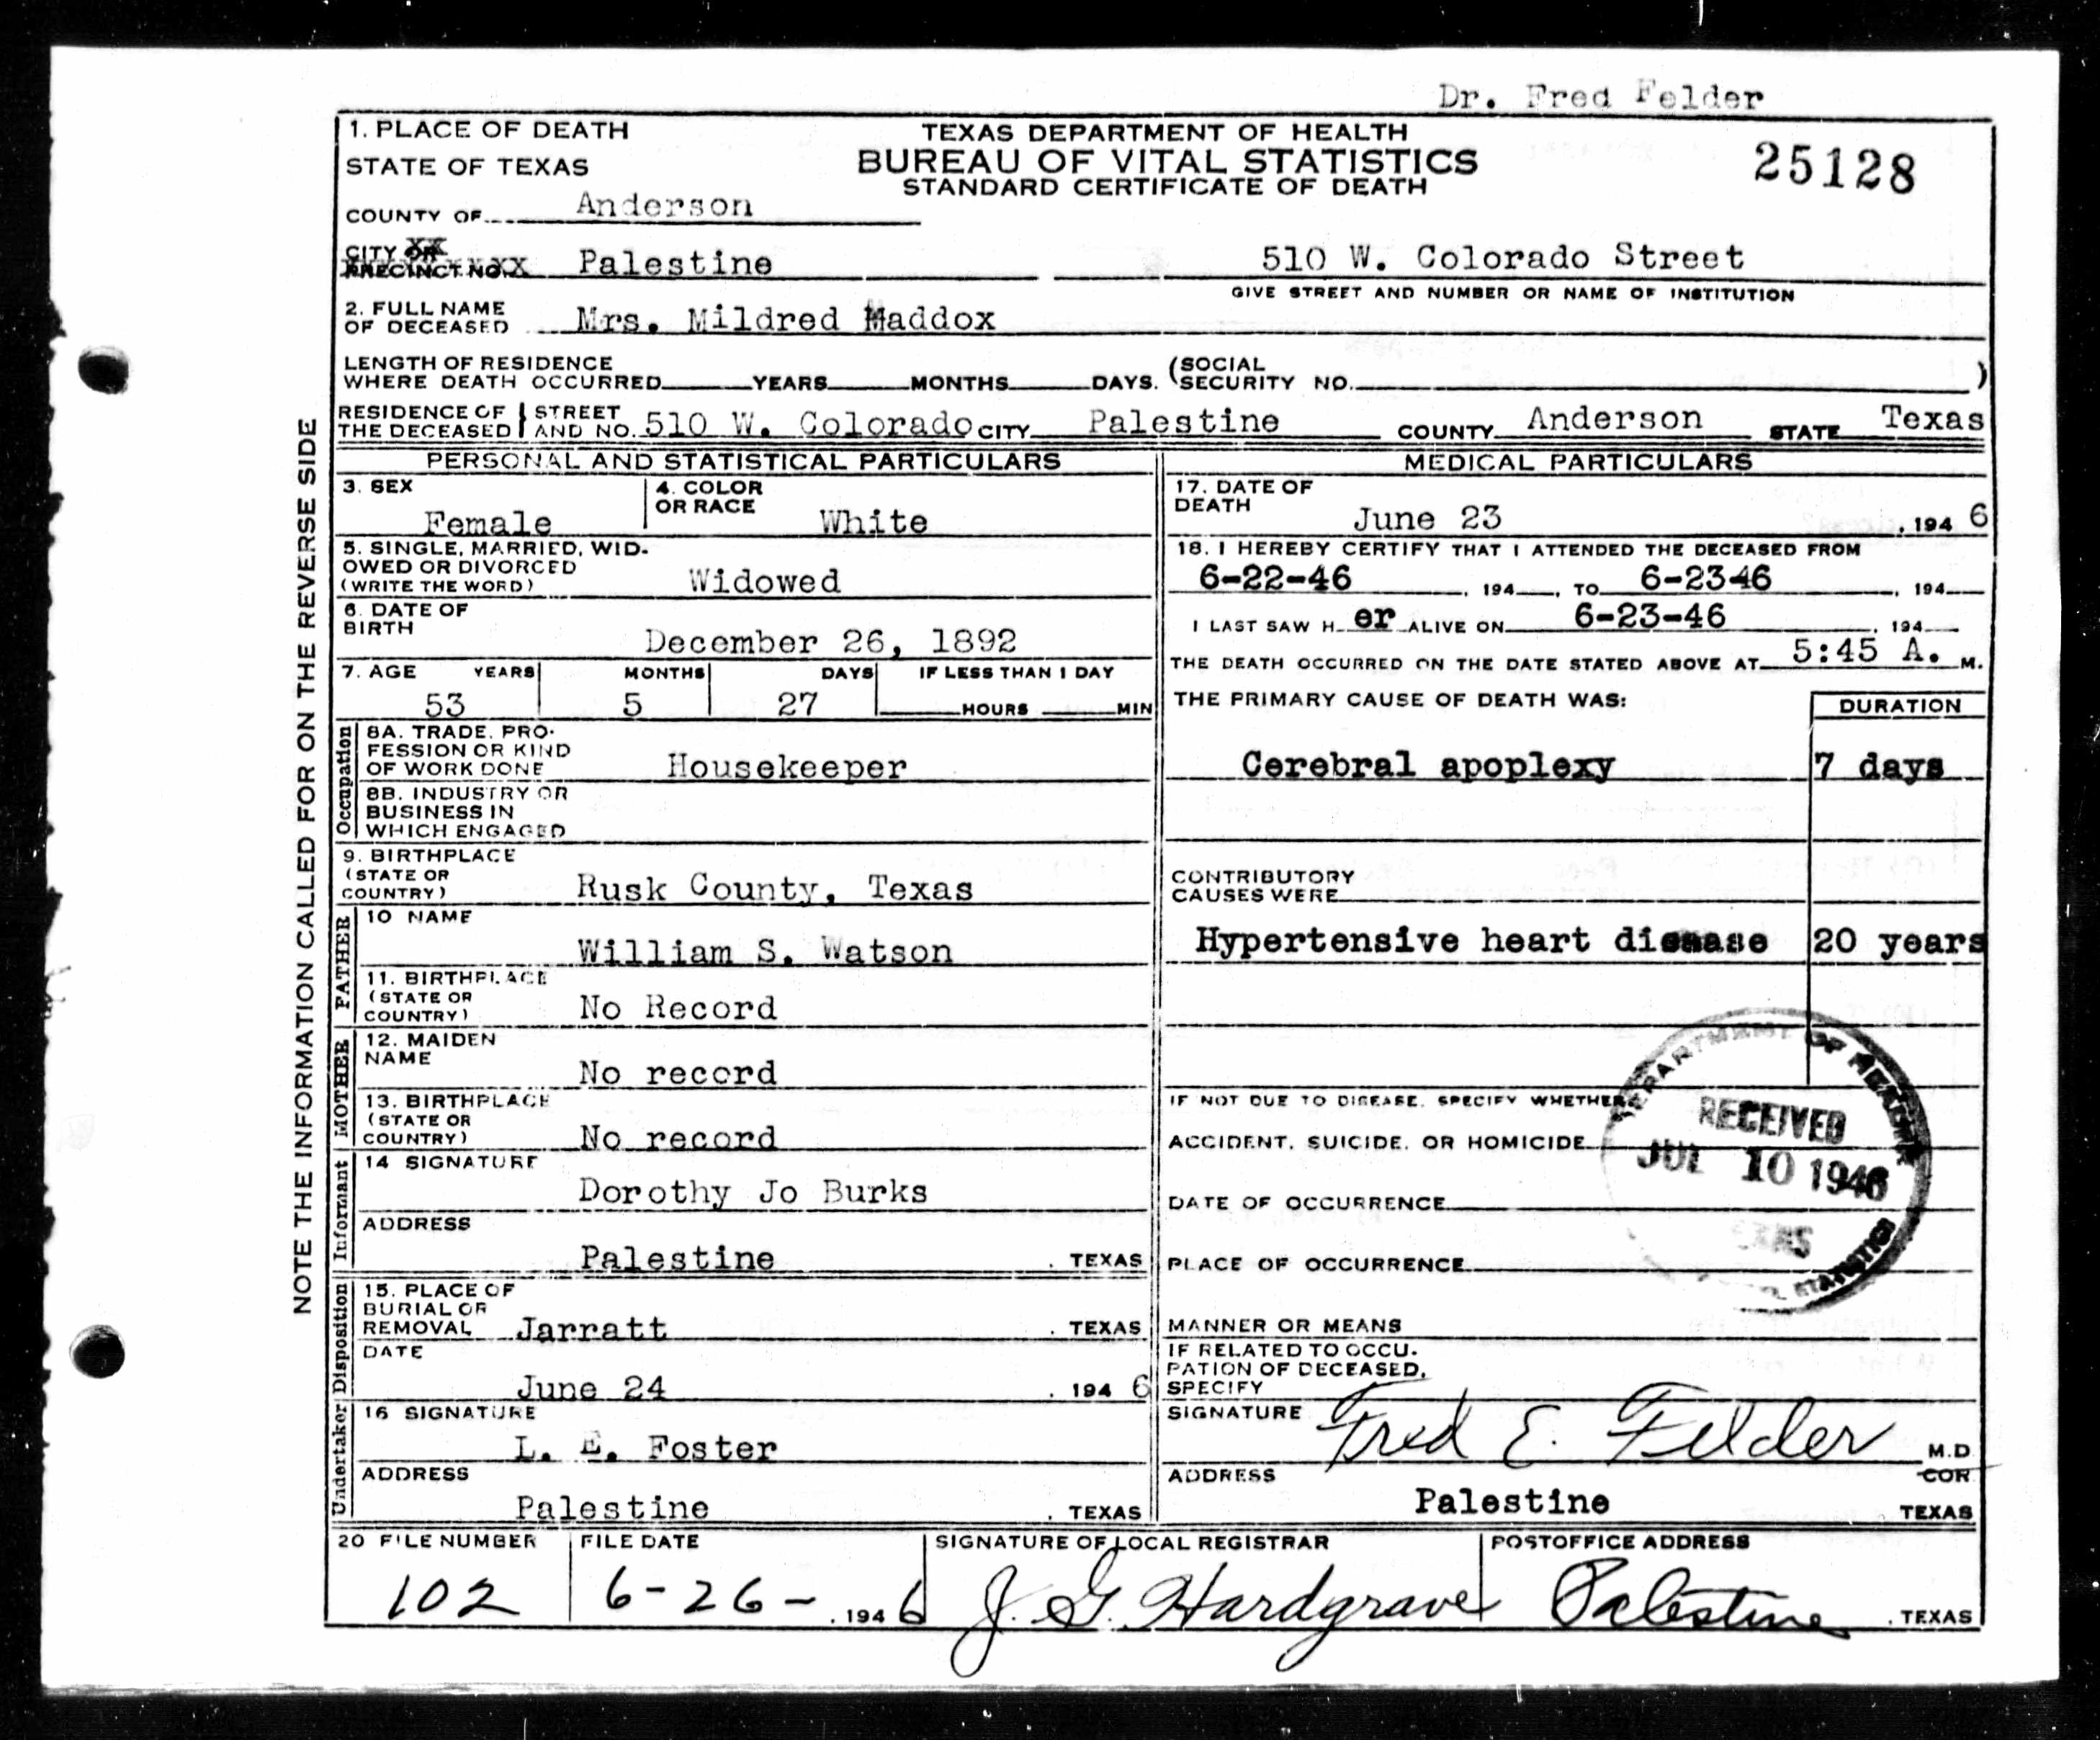 Dr. Fred Felder
1. PLACE OF DEATH
STATE OF TEXAS
COUNTY OF Anderson
TEXAS DEPARTMENT OF HEALTH
BUREAU OF VITAL STATISTICS
STANDARD CERTIFICATE OF DEATH
25128
CITY OR XX
PRECINCT NO. XX Palestine
510 W. Colorado Street
GIVE STREET AND NUMBER OR NAME OF INSTITUTION
2. FULL NAME
OF DECEASED Mrs. Mildred Maddox
LENGTH OF RESIDENCE
WHERE DEATH OCCURRED YEARS MONTHS DAYS. (SOCIAL
SECURITY NO. )
RESIDENCE OF
THE DECEASED STREET
AND NO. 510 W. Colorado CITY Palestine COUNTY Anderson STATE Texas
PERSONAL AND STATISTICAL PARTICULARS
3. SEX
Female
4. COLOR
OR RACE White
5. SINGLE, MARRIED, WID-
OWED OR DIVORCED
(WRITE THE WORD) Widowed
6. DATE OF
BIRTH
December 26, 1892
7. AGE YEARS MONTHS DAYS IF LESS THAN 1 DAY
53 5 27 HOURS MIN
Occupation
8A. TRADE, PRO-
FESSION OR KIND
OF WORK DONE Housekeeper
8B. INDUSTRY OR
BUSINESS IN
WHICH ENGAGED
9. BIRTHPLACE
(STATE OR
COUNTRY) Rusk County, Texas
FATHER
10 NAME
William S. Watson
11. BIRTHPLACE
(STATE OR
COUNTRY) No Record
MOTHER
12. MAIDEN
NAME
No record
13. BIRTHPLACE
(STATE OR
COUNTRY) No record
Informant
14 SIGNATURE
Dorothy Jo Burks
ADDRESS
Palestine . TEXAS
Disposition
15. PLACE OF
BURIAL OR
REMOVAL Jarratt . TEXAS
DATE
June 24 . 194 6
Undertaker
16 SIGNATURE
L. E. Foster
ADDRESS
Palestine . TEXAS
MEDICAL PARTICULARS
17. DATE OF
DEATH June 23 , 194 6
18. I HEREBY CERTIFY THAT I ATTENDED THE DECEASED FROM
6-22-46 , 194 , TO 6-2346 , 194
I LAST SAW H er ALIVE ON 6-23-46 , 194
THE DEATH OCCURRED ON THE DATE STATED ABOVE AT 5:45 A. M.
THE PRIMARY CAUSE OF DEATH WAS:
DURATION
Cerebral apoplexy 7 days
CONTRIBUTORY
CAUSES WERE
Hypertensive heart disease 20 years
IF NOT DUE TO DISEASE, SPECIFY WHETHER
ACCIDENT, SUICIDE, OR HOMICIDE
DATE OF OCCURRENCE
PLACE OF OCCURRENCE
MANNER OR MEANS
IF RELATED TO OCCU-
PATION OF DECEASED,
SPECIFY
DEPARTMENT OF HEALTH
RECEIVED
JUL 10 1946
TEXAS
STATISTICS
SIGNATURE Fred E. Felder M.D
COR
ADDRESS
Palestine TEXAS
20 FILE NUMBER FILE DATE SIGNATURE OF LOCAL REGISTRAR POSTOFFICE ADDRESS
102 6-26- , 194 6 J. G. Hardgrave Palestine . TEXAS
NOTE THE INFORMATION CALLED FOR ON THE REVERSE SIDE